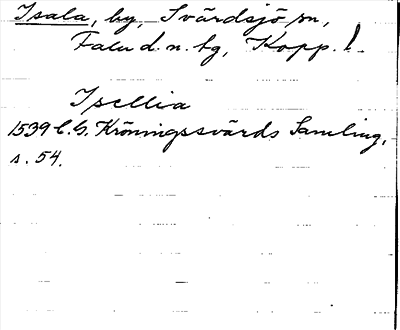 Isala, by, Svärdsjö sn,
Falu d. n. tg, Kopp. l.
Isellia
1539 C.G. Kröningssvärds Samling,
s. 54.